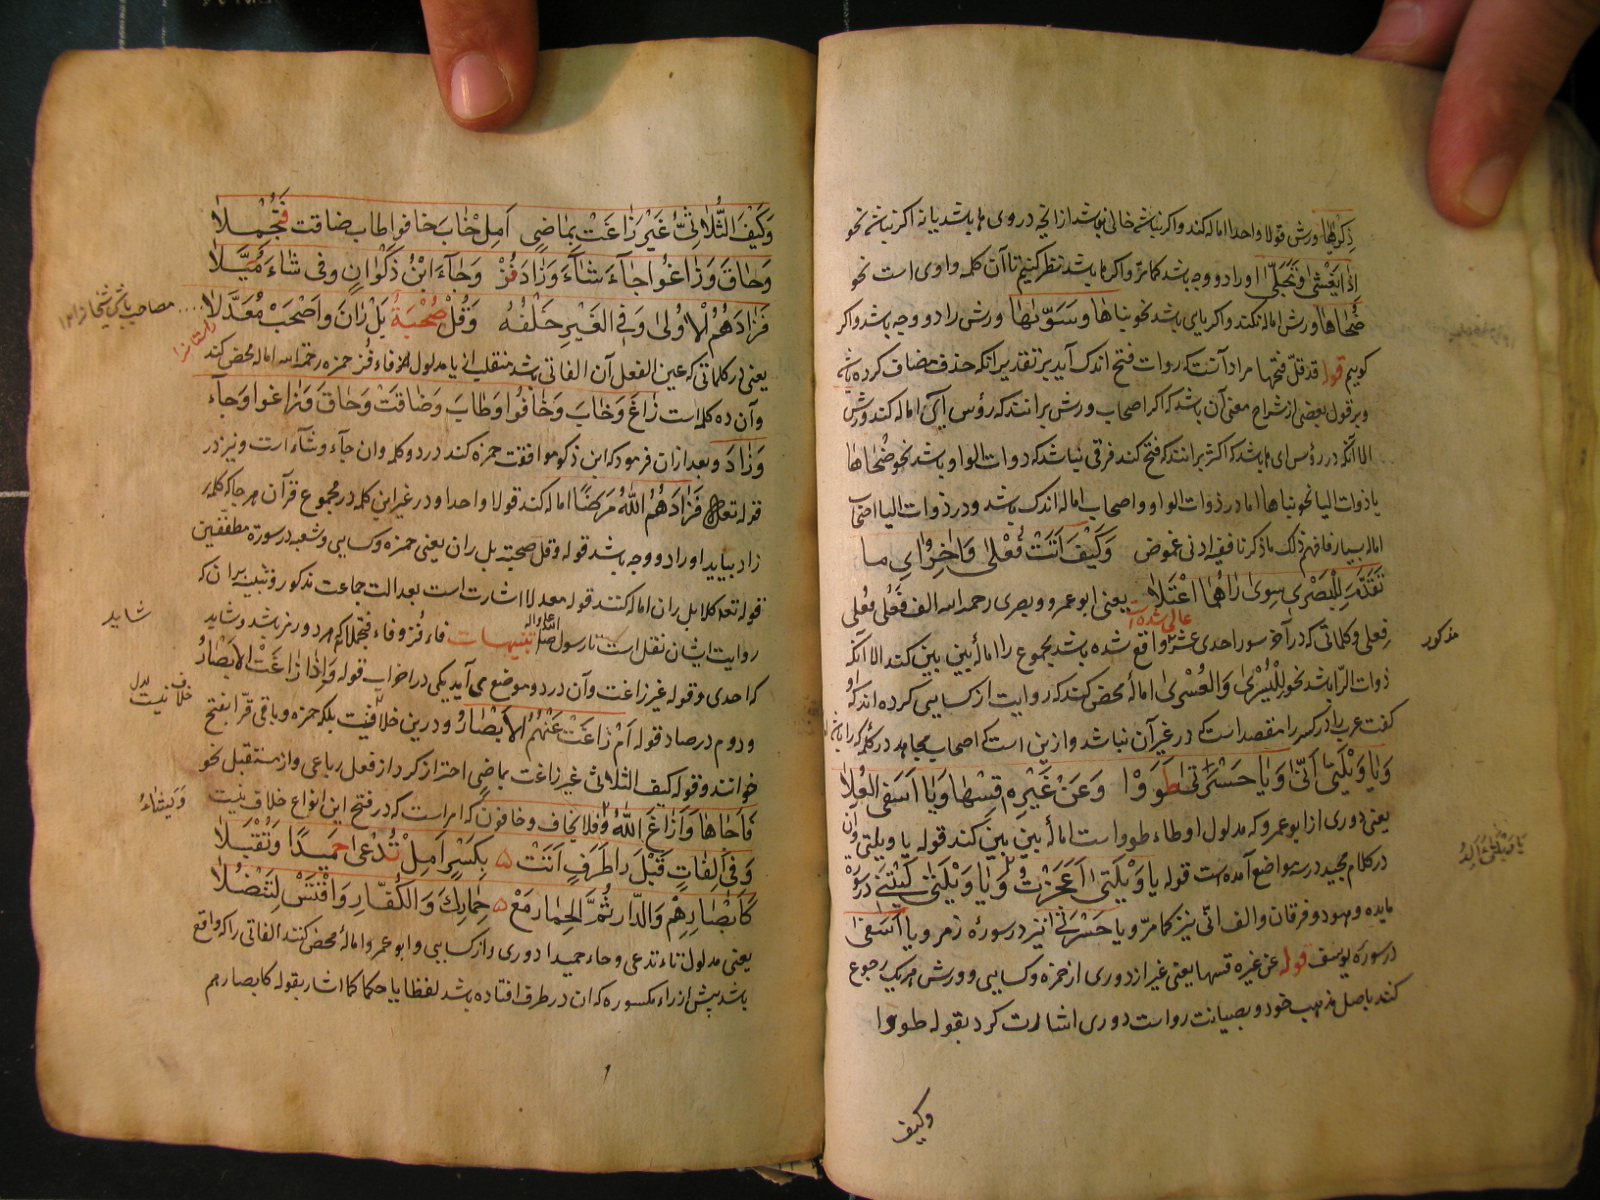 ذكرها ورش قولا واحدا اماله كند واكر نباشد خالى نباشد از انچه در وى ها باشد يا نه اكر نباشد نحو
اذا يغشى وتجلى او را دو وجه باشد كما مر واكر ها باشد نظر كنيم تا آن كلمه واوى است نحو
ضحاها ورش اماله نكند واكر يايى باشد نحو بناها وسوّىها ورش را دو وجه باشد واكر
كوييم قوله قد قل فتحها مراد آنست كه روات فتح اندك آيد بر تقدير انكه حذف مضاف كرده باشد
وبر قول بعضى از شراح معنى آن باشد كه اكر اصحاب ورش برانند كه رؤس آى اماله كند ورش
الا انكه در رؤس اى ها باشد كه اكثر برانند كه فتح كند فرقى نباشد كه ذوات الواو باشد نحو ضحاها
يا ذوات اليا نحو بناها اما در ذوات الواو اصحاب اماله اندك باشد ودر ذوات اليا اصحاب
اماله بسيار فافهم ذلك ما ذكرنا ففيه ادنى غموض وَكَيْفَ اَتَتْ فُعْلٰى وَاٰخِرُ اٰىِ ما
تَقَدَّمَ لِلْبَصْرِى سِوٰى رَاهُمَا اعْتَلَا يعنى ابو عمرو وبصرى رحمه الله الف فَعْلى فُعْلى
عالى شده است
فِعلى وكلماتى كه در آخر سور احدى عشر واقع شده باشد مجموع را امالهٔ بين بين كند الا انكه
مذكور
ذوات الرا باشد نحو لِلْيُسْرٰى وَالْعُسْرٰى امالهٔ محض كند كه روايت از كسايى كرده اند كه او
كفت عرب را در كسر را مقصد است كه در غير آن نباشد وازين است كه اصحاب مجاهد در كلمه كه را باشد
وَيَا وَيْلَتٰى اَنّٰى وَيَا حَسْرَتٰى طَوَوْا وَعَنْ غَيْرِهٖ قِسْهَا وَيَا اَسَفَى الْعُلَا
يعنى دورى از ابو عمرو كه مدلول او طاء طووا است امالهٔ بين بين كند قوله يا ويلتى وان
در كلام مجيد در سه مواضع آمده است قوله يا وَيْلَتٰى اَعَجَزْتُ وَيَا وَيْلَتٰى لَيْتَنِى در سورهٔ
مايده وهود وفرقان والف انّى نيز كما مر ويا حَسْرَتٰى نيز در سورهٔ زمر ويا اَسَفٰى
در سوره يوسف قوله عن غيره قسها يعنى غير از دورى از حمزه وكسايى وورش هر يك رجوع
كند باصل مذهب خود وبصيانت رواست دورى اشارت كرد بقوله طووا
وكيف
وَكَيْفَ الثُّلَاثِىُّ غَيْرَ زَاغَتْ بِمَاضِى اَمِلْ خَابَ خَافُوا طَابَ ضَاقَتْ فَتُجْمِلَا
وَحَاقَ وَزَاغُوا جَاءَ شَاءَ وَزَادَ فُزْ وَجَاءَ ابْنُ ذَكْوَانٍ وَفِى شَاءَ مَيَّلَا
فَزَادَهُمُ الْاُولٰى وَفِى الْغَيْرِ خُلْفُهُ وَقُلْ صُحْبَةٌ بَلْ رَانَ وَاصْحَبْ مُعَدَّلَا
يعنى در كلماتى كه عين الفعل آن الفاتى باشد منقلب از يا مدلول فاء فُز حمزه رحمه الله اماله محض كند
وآن ده كلمه است زَاغَ وَخَابَ وَخَافُوا وَطَابَ وَضَاقَتْ وَحَاقَ وَزَاغُوا وَجَآءَ
وَزَادَ وبعد ازان فرمود كه ابن ذكو موافقت حمزه كند در دو كلمه وان جآء وشآء است ونيز در
قوله تعالى فَزَادَهُمُ اللّٰهُ مَرَضًا اماله كند قولا واحدا ودر غير اين كلمه در مجموع قرآن هر جا كه كلمه
زاد بيايد او را دو وجه باشد قوله وقل صحبة بل ران يعنى حمزه وكسايى وشعبه در سورهٔ مطففين
قوله تعه كلا بل ران اماله كنند قوله معدلا اشارت است بعدالت جماعت مذكور وتنبيه بران كه
شايد
روايت ايشان نقل است تا رسول صلى الله عليه واله تنبيهات فاء فُز وفاء فتجملا كه هر دو رمز باشد وشايد
كه احدى وقوله غير زاغت وآن در دو موضع مى آيد يكى در احزاب قوله وَاِذْ زَاغَتْ الْاَبْصَارُ
خلاف نيست بدل
ودوم در صاد قوله اَمْ زَاغَتْ عَنْهُمُ الْاَبْصَارُ ودرين خلاف نيست بلكه حمزه وباقى قرا بفتح
خوانند وقوله كيف الثلاثى غير زاغت بماضى احتراز كرد از فعل رباعى واز مستقبل نحو
ويشاءُ
فَاَجَاءَهَا وَاَزَاغَ اللّٰهُ وفلا يخاف وخافون كه امر است كه در فتح اين انواع خلاف نيست
وَفِى اَلِفَاتٍ قَبْلَ رَا طَرَفٍ اَتَتْ بِكَسْرٍ اَمِلْ تُدْعٰى حَمِيدًا وَتُقْبَلَا
كَاَبْصَارِهِمْ وَالدَّارِ ثُمَّ الْحِمَارِ مَعْ حِمَارِكَ وَالْكُفَّارِ وَاقْتَسْ لِتَنْضُلَا
يعنى مدلول تاء تدعى وحاء حميدا دورى واز كسايى وابو عمر واماله محض كنند الفاتى را كه واقع
باشد پيش از راء مكسوره كه ان در طرف افتاده باشد لفظا يا حكما كما اشار بقوله كابصارهم